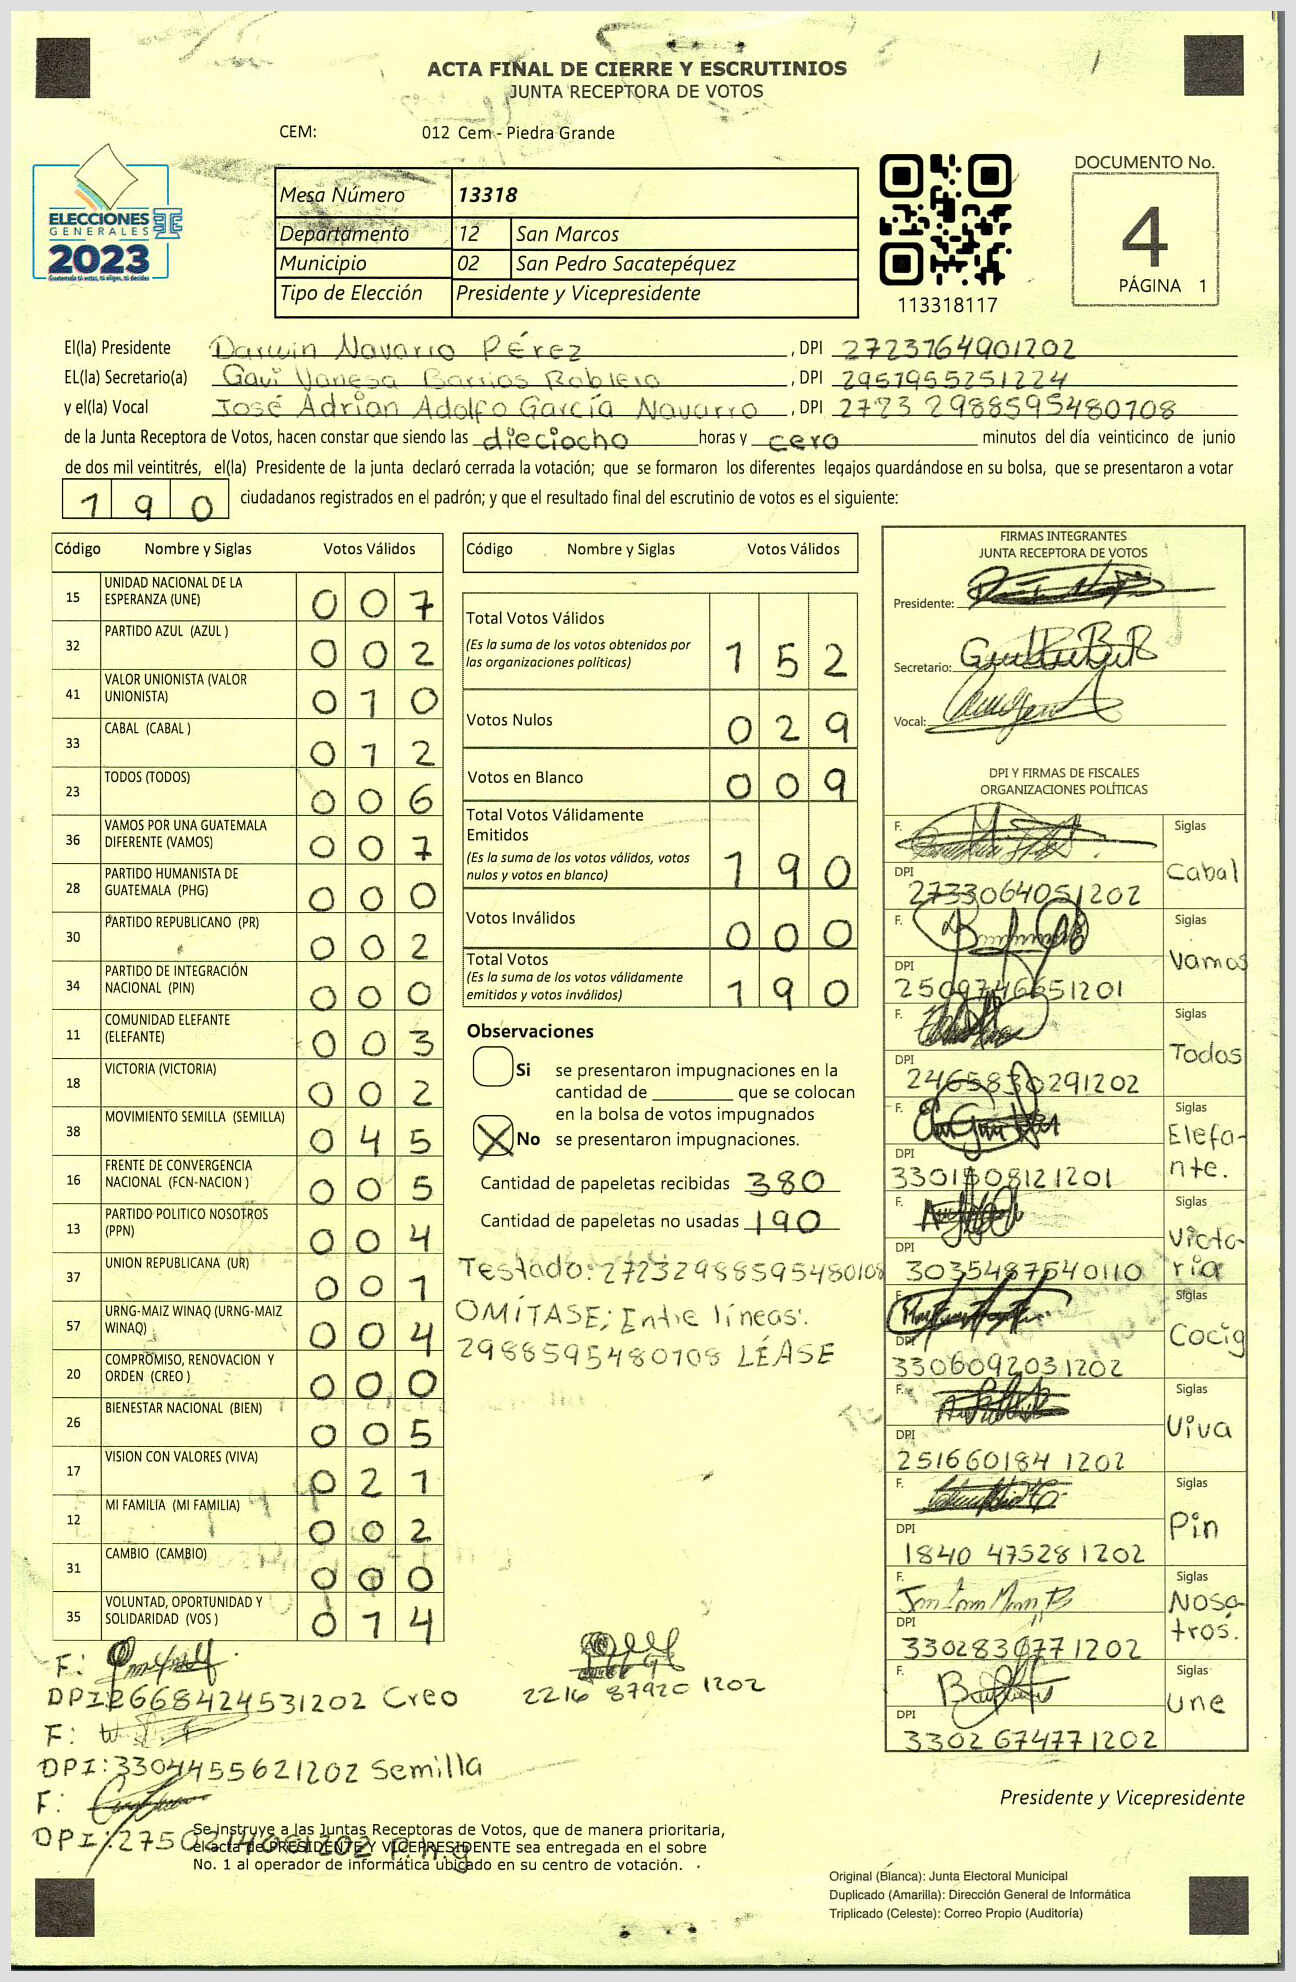 ACTA FINAL DE CIERRE Y ESCRUTINIOS
JUNTA RECEPTORA DE VOTOS
CEM: 012 Cem - Piedra Grande
ELECCIONES
GENERALES
2023
Guatemala tú votas, tú eliges, tú decides
Mesa Número 13318
Departamento 12 San Marcos
Municipio 02 San Pedro Sacatepéquez
Tipo de Elección Presidente y Vicepresidente
113318117
DOCUMENTO No.
4
PÁGINA 1
El(la) Presidente Darwin Navarro Pérez , DPI 2723764901202
EL(la) Secretario(a) Gavi Vanesa Barrios Roblero , DPI 2957955251224
y el(la) Vocal José Adrian Adolfo García Navarro , DPI 2723 2988595480108
de la Junta Receptora de Votos, hacen constar que siendo las dieciocho horas y cero minutos del día veinticinco de junio
de dos mil veintitrés, el(la) Presidente de la junta declaró cerrada la votación; que se formaron los diferentes legajos guardándose en su bolsa, que se presentaron a votar
190 ciudadanos registrados en el padrón; y que el resultado final del escrutinio de votos es el siguiente:
Código Nombre y Siglas Votos Válidos
15 UNIDAD NACIONAL DE LA ESPERANZA (UNE) 007
32 PARTIDO AZUL (AZUL ) 002
41 VALOR UNIONISTA (VALOR UNIONISTA) 010
33 CABAL (CABAL ) 012
23 TODOS (TODOS) 006
36 VAMOS POR UNA GUATEMALA DIFERENTE (VAMOS) 007
28 PARTIDO HUMANISTA DE GUATEMALA (PHG) 000
30 PARTIDO REPUBLICANO (PR) 002
34 PARTIDO DE INTEGRACIÓN NACIONAL (PIN) 000
11 COMUNIDAD ELEFANTE (ELEFANTE) 003
18 VICTORIA (VICTORIA) 002
38 MOVIMIENTO SEMILLA (SEMILLA) 045
16 FRENTE DE CONVERGENCIA NACIONAL (FCN-NACION ) 005
13 PARTIDO POLITICO NOSOTROS (PPN) 004
37 UNION REPUBLICANA (UR) 001
57 URNG-MAIZ WINAQ (URNG-MAIZ WINAQ) 004
20 COMPROMISO, RENOVACION Y ORDEN (CREO ) 000
26 BIENESTAR NACIONAL (BIEN) 005
17 VISION CON VALORES (VIVA) 021
12 MI FAMILIA (MI FAMILIA) 002
31 CAMBIO (CAMBIO) 000
35 VOLUNTAD, OPORTUNIDAD Y SOLIDARIDAD (VOS ) 014
Código Nombre y Siglas Votos Válidos
Total Votos Válidos 152
(Es la suma de los votos obtenidos por
las organizaciones políticas)
Votos Nulos 029
Votos en Blanco 009
Total Votos Válidamente
Emitidos 190
(Es la suma de los votos válidos, votos
nulos y votos en blanco)
Votos Inválidos 000
Total Votos 190
(Es la suma de los votos válidamente
emitidos y votos inválidos)
Observaciones
Si se presentaron impugnaciones en la
cantidad de que se colocan
en la bolsa de votos impugnados
X No se presentaron impugnaciones.
Cantidad de papeletas recibidas 380
Cantidad de papeletas no usadas 190
Testado: 27232988595480108
OMÍTASE; Entre líneas:
2988595480108 LÉASE
FIRMAS INTEGRANTES
JUNTA RECEPTORA DE VOTOS
Presidente:
Secretario:
Vocal:
DPI Y FIRMAS DE FISCALES
ORGANIZACIONES POLÍTICAS
F. Siglas
DPI 2733064051202 Cabal
F. Siglas
DPI 2509746651201 Vamos
F. Siglas
DPI 2465830291202 Todos
F. Siglas
DPI 3301508121201 Elefa-
nte.
F. Siglas
DPI 3035487540110 Victo-
ria
F. Siglas
DPI 3306092031202 Cocig
F. Siglas
DPI 251660184 1202 Viva
F. Siglas
DPI 1840 47528 1202 Pin
F. Siglas
DPI 330283077 1202 Noso-
tros.
F. Siglas
DPI 3302 674771202 Une
F:
DPI 2668424531202 Creo
2216 87920 1202
F:
DPI: 3304455621202 Semilla
F:
DPI: 2750214061202 P.h.g
Se instruye a las Juntas Receptoras de Votos, que de manera prioritaria,
el acta de PRESIDENTE Y VICEPRESIDENTE sea entregada en el sobre
No. 1 al operador de informática ubicado en su centro de votación.
Presidente y Vicepresidente
Original (Blanca): Junta Electoral Municipal
Duplicado (Amarilla): Dirección General de Informática
Triplicado (Celeste): Correo Propio (Auditoría)